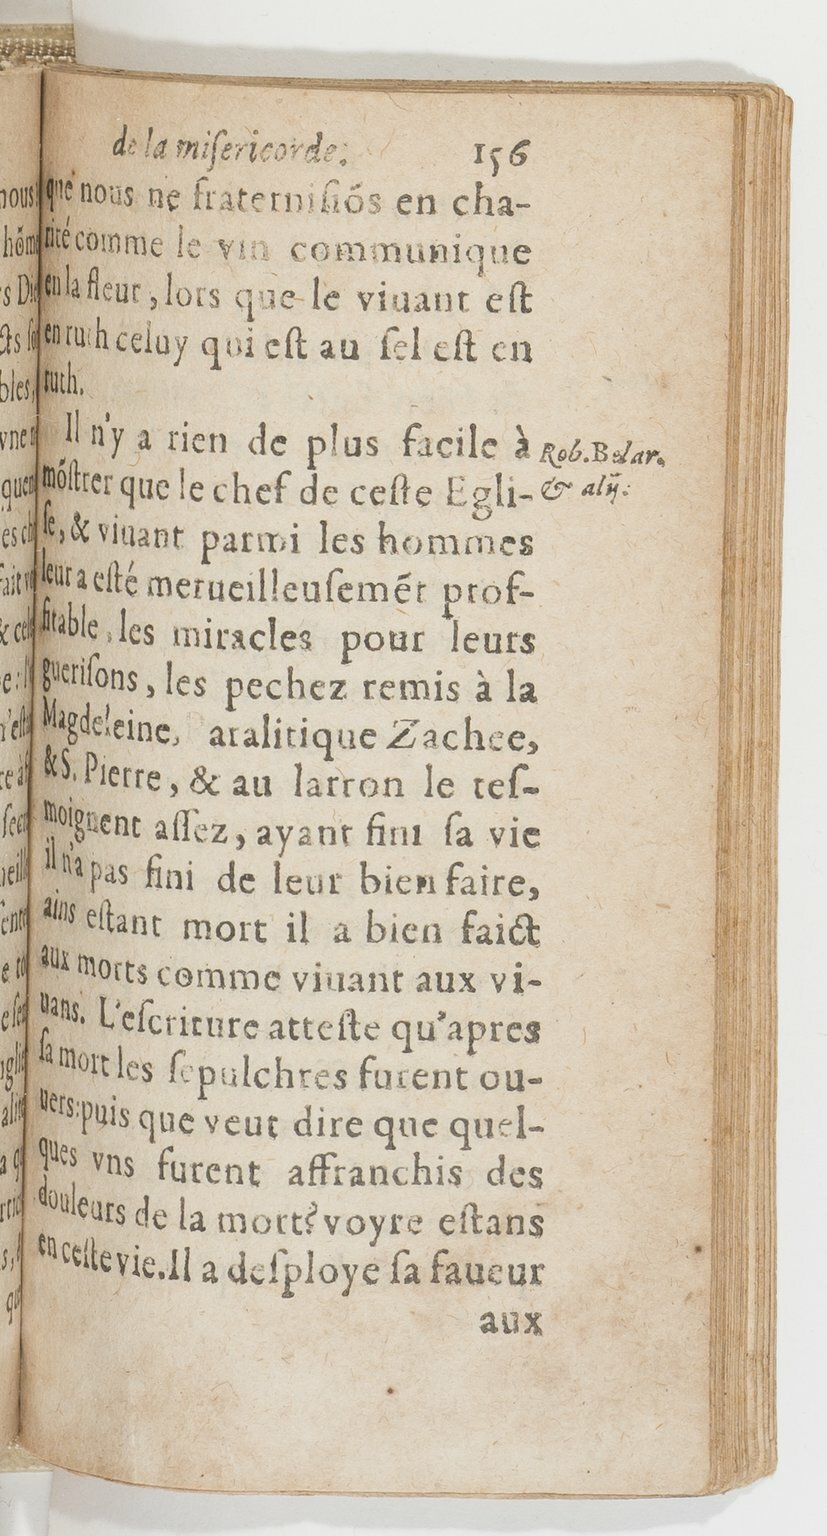 de la miſericorde. 156
que nous ne fraterniſiõs en cha-
rité comme le vin communique
en la fleur, lors que le viuant eſt
en ruth celuy qui eſt au ſel eſt en
ruth.
Il n'y a rien de plus facile à
mõſtrer que le chef de ceſte Egli-
ſe, & viuant parmi les hommes
leur a eſté merueilleuſemẽt prof-
fitable, les miracles pour leurs
gueriſons, les pechez remis à la
Magdeleine, atalitique Zachee,
& S. Pierre, & au larron le teſ-
moignent aſſez, ayant fini ſa vie
il n'a pas fini de leur bien faire,
ains eſtant mort il a bien faict
aux morts comme viuant aux vi-
uans. L'eſcriture atteſte qu'apres
ſa mort les ſepulchres furent ou-
uers: puis que veut dire que quel-
ques vns furent affranchis des
douleurs de la mort? voyre eſtans
en ceſte vie. Il a deſploye ſa faueur
aux
Rob. Belar.
& alij.